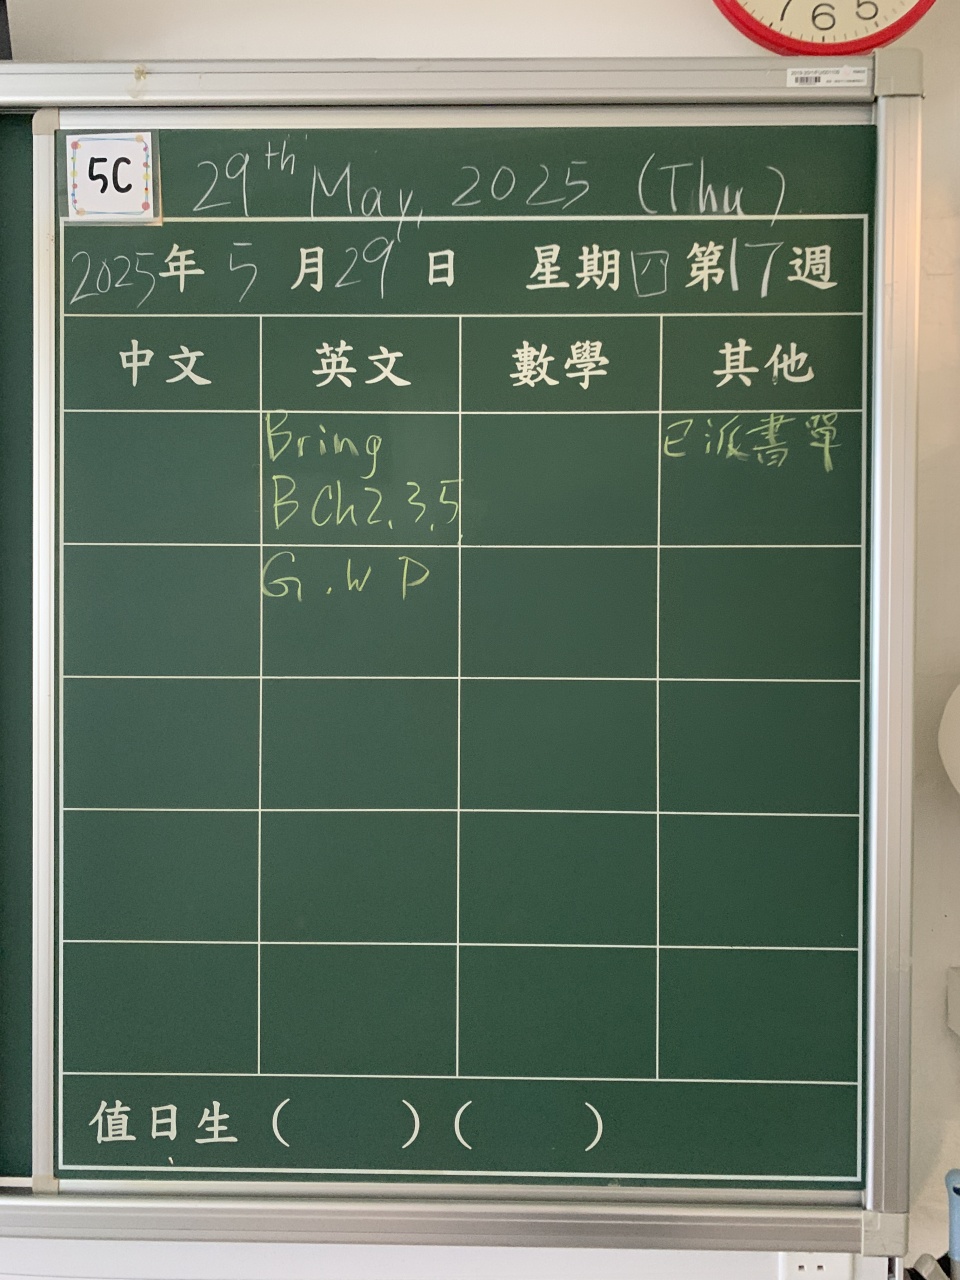 7 6 5
5C
29th May, 2025 (Thu)
2025年5月29日 星期四第17週
中文 英文 數學 其他
Bring 已派書單
B Ch2,3,5
G.W P
值日生( )( )